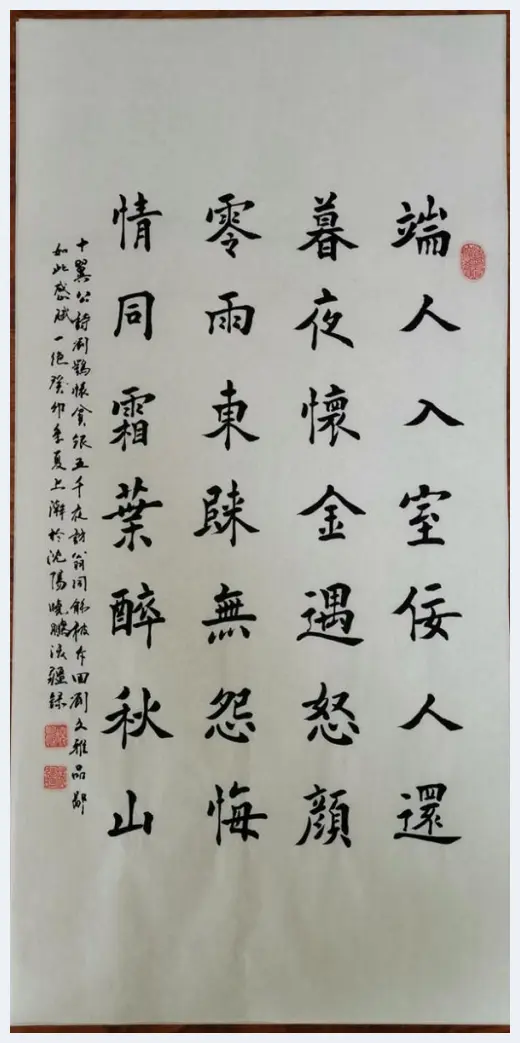 端人入室佞人還
暮夜懷金遇怒顏
零雨東踈無怨悔
情同霜葉醉秋山
十翼公詩劉鷄悵貪銀五千夜訪翁同龢被斥回劉文雅品鄙
如此感賦一絕癸卯季夏上澣於沈陽曉鵬張疆録